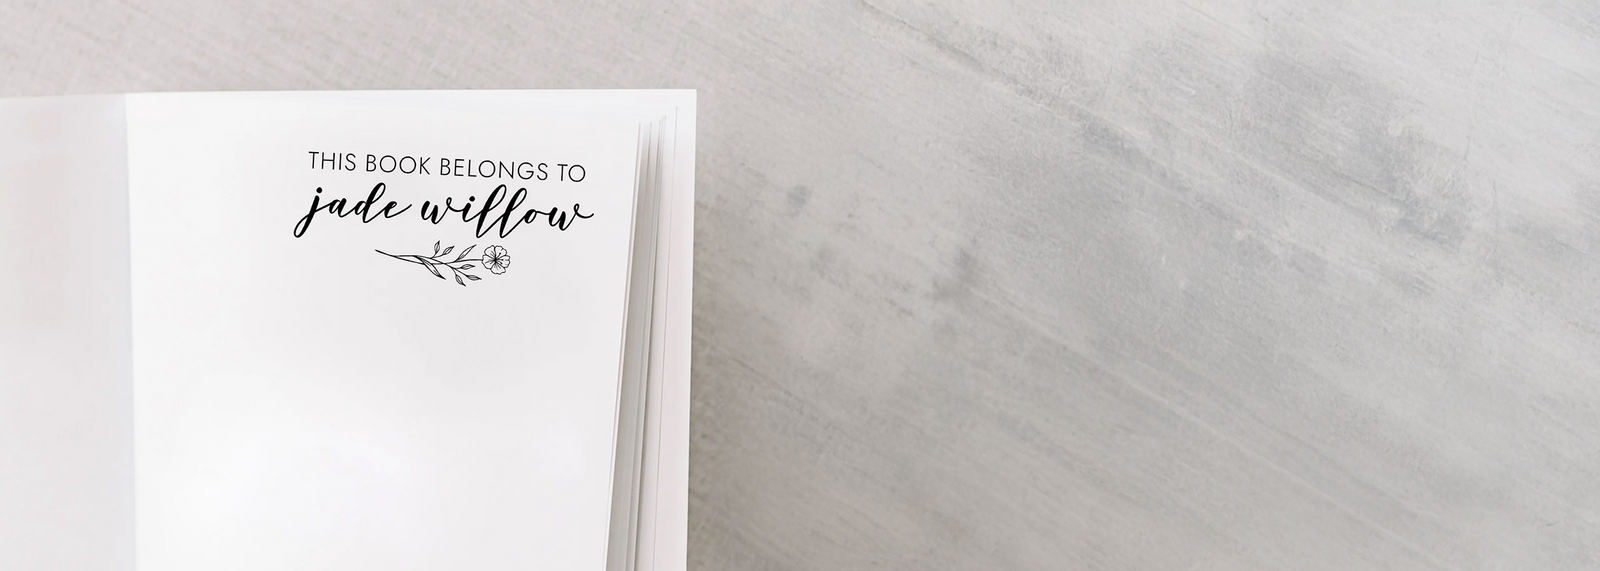 THIS BOOK BELONGS TO
jade willow